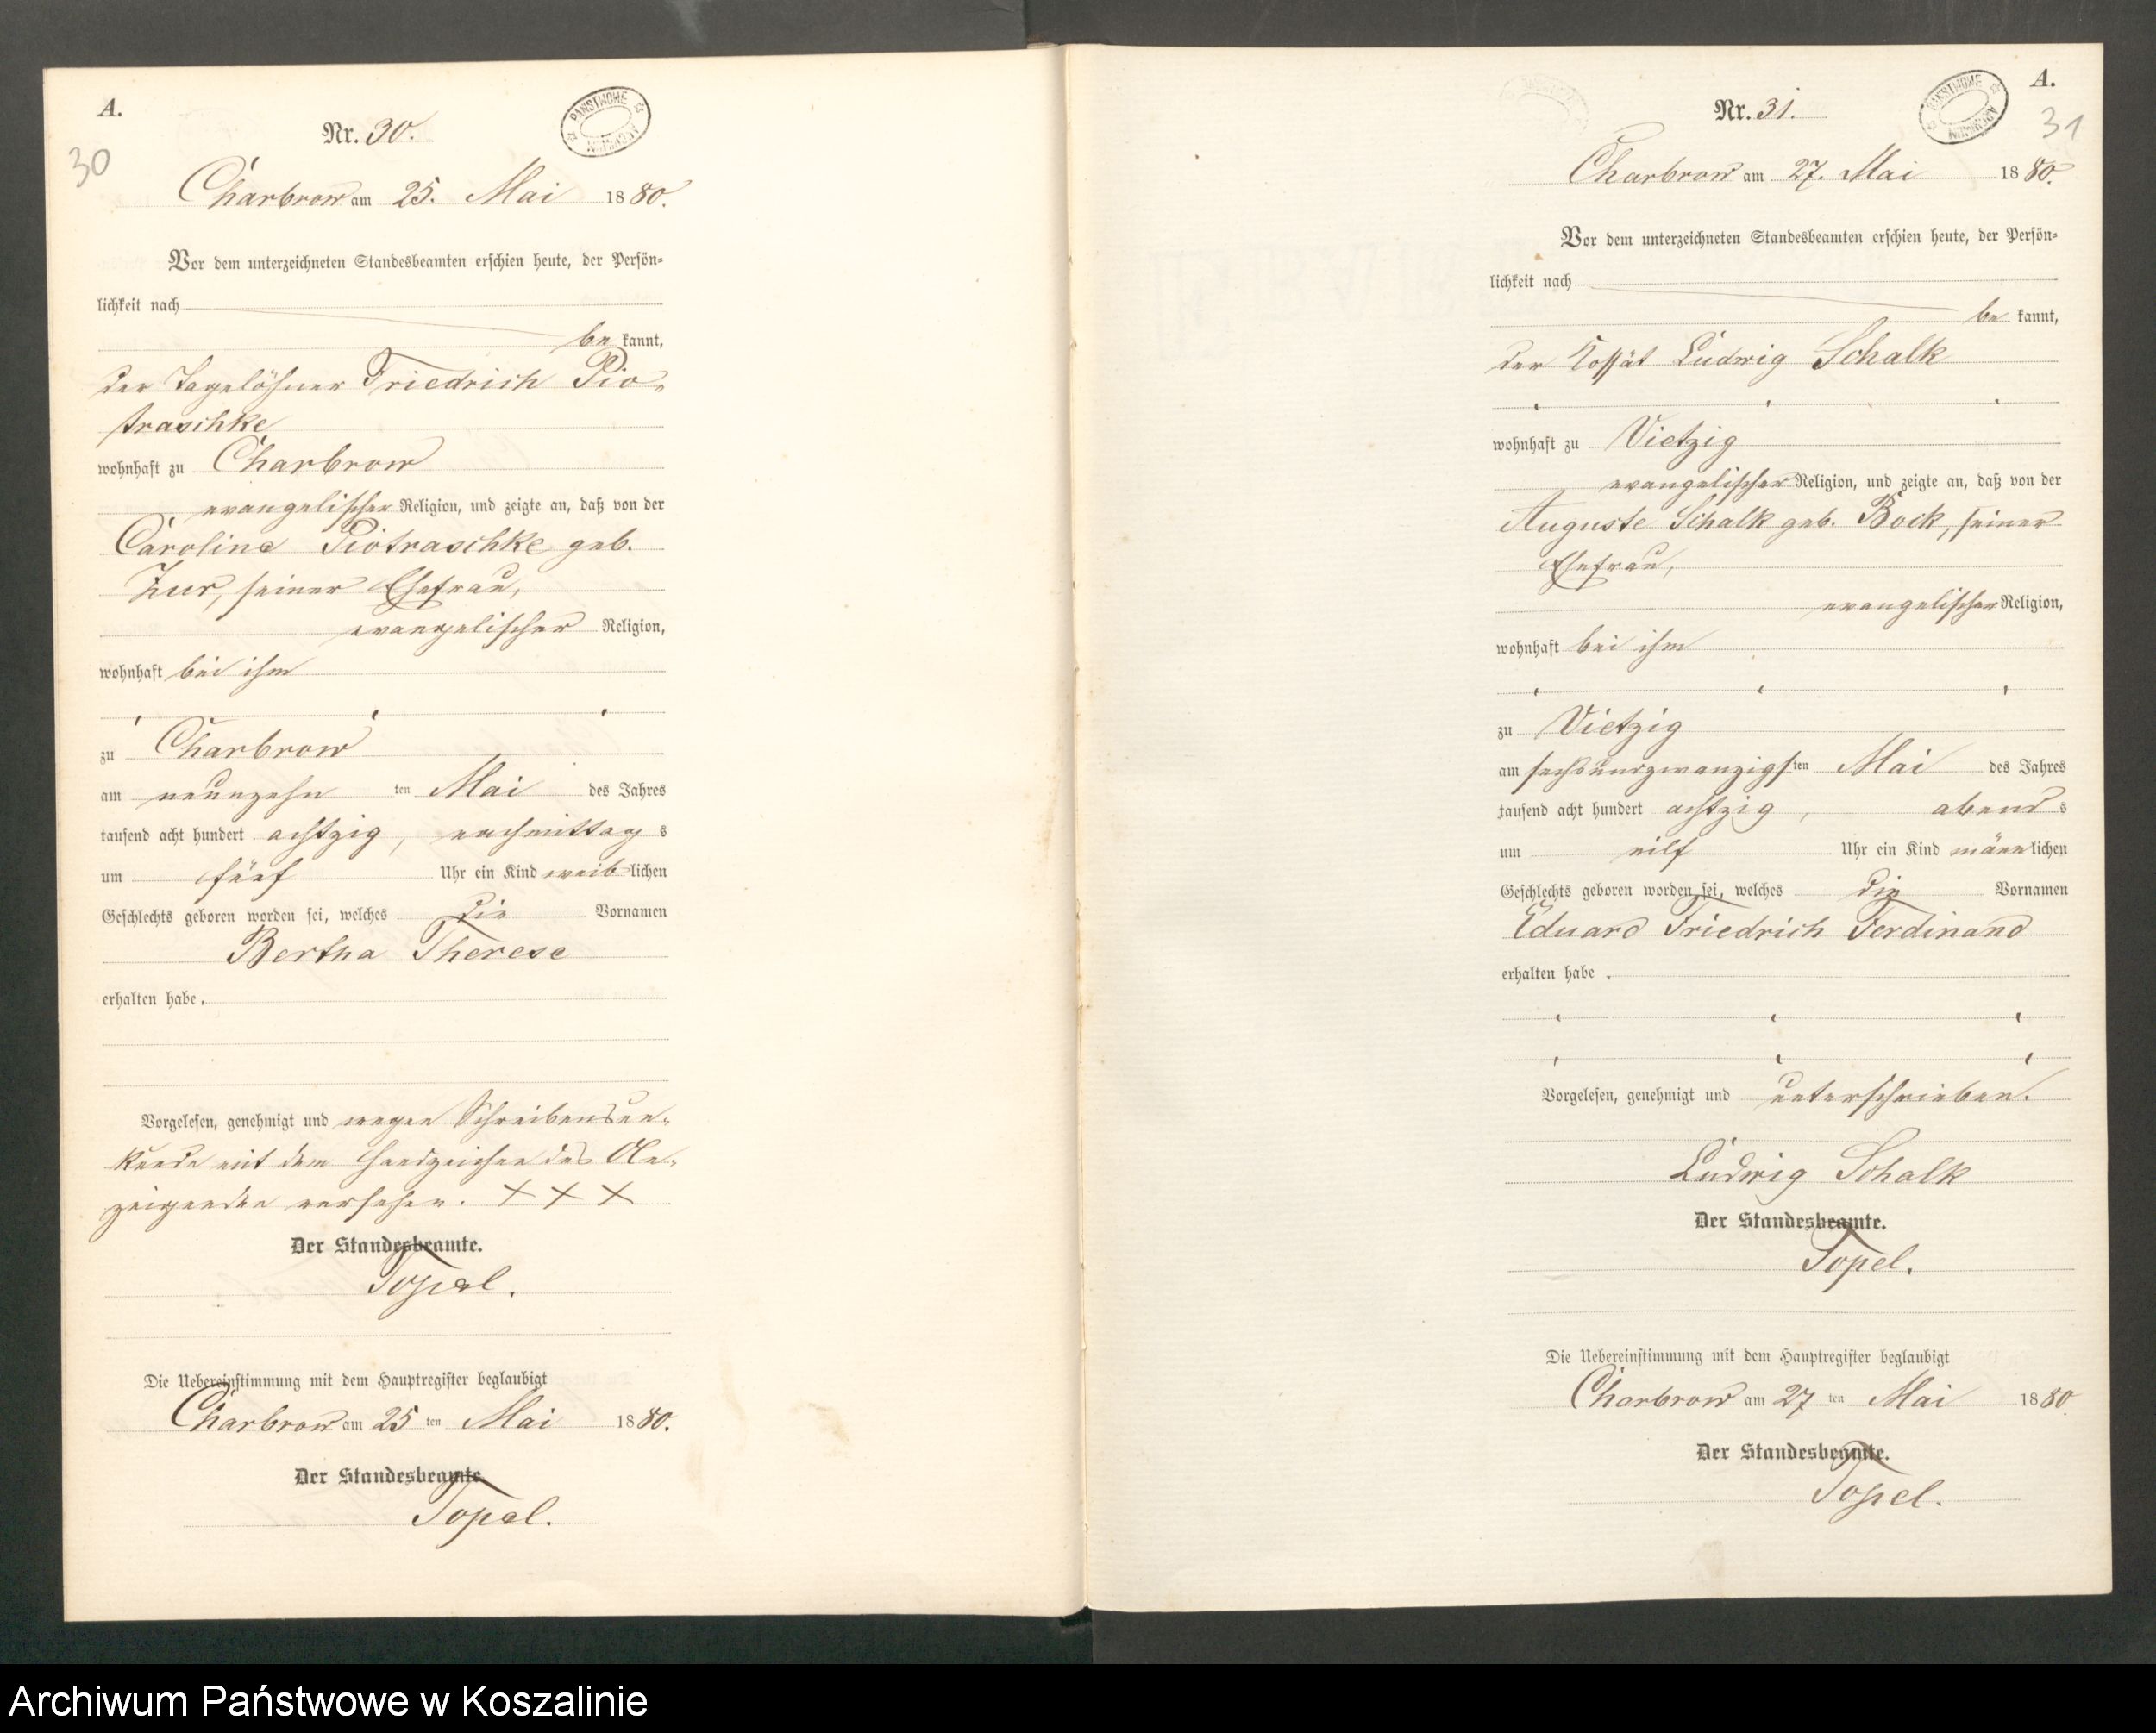 A.
30
Nr. 30.
PAŃSTWOWE ARCHIWUM
Charbrow am 25. Mai 1880.
Vor dem unterzeichneten Standesbeamten erschien heute, der Persön-
lichkeit nach
be kannt,
der Tagelöhner Friedrich Pio-
traschke
wohnhaft zu Charbrow
evangelischer Religion, und zeigte an, daß von der
Caroline Piotraschke geb.
Zur, seiner Ehefrau,
evangelischer Religion,
wohnhaft bei ihm
zu Charbrow
am neunzehn ten Mai des Jahres
tausend acht hundert achtzig, nachmittag s
um fünf Uhr ein Kind weib lichen
Geschlechts geboren worden sei, welches die Vornamen
Bertha Therese
erhalten habe.
Vorgelesen, genehmigt und wegen Schreibensun-
kunde mit dem Handzeichen des An-
zeigenden versehen. + + +
Der Standesbeamte.
Topel.
Die Uebereinstimmung mit dem Hauptregister beglaubigt
Charbrow am 25 ten Mai 1880.
Der Standesbeamte.
Topel.
A.
31
Nr. 31.
PAŃSTWOWE ARCHIWUM
Charbrow am 27. Mai 1880.
Vor dem unterzeichneten Standesbeamten erschien heute, der Persön-
lichkeit nach
be kannt,
der Kossät Ludwig Schalk
wohnhaft zu Vietzig
evangelischer Religion, und zeigte an, daß von der
Auguste Schalk geb. Bock, seiner
Ehefrau,
evangelischer Religion,
wohnhaft bei ihm
zu Vietzig
am sechsundzwanzigsten Mai des Jahres
tausend acht hundert achtzig, abend s
um eilf Uhr ein Kind männ lichen
Geschlechts geboren worden sei, welches die Vornamen
Eduard Friedrich Ferdinand
erhalten habe.
Vorgelesen, genehmigt und unterschrieben.
Ludwig Schalk
Der Standesbeamte.
Topel.
Die Uebereinstimmung mit dem Hauptregister beglaubigt
Charbrow am 27 ten Mai 1880
Der Standesbeamte.
Topel.
Archiwum Państwowe w Koszalinie